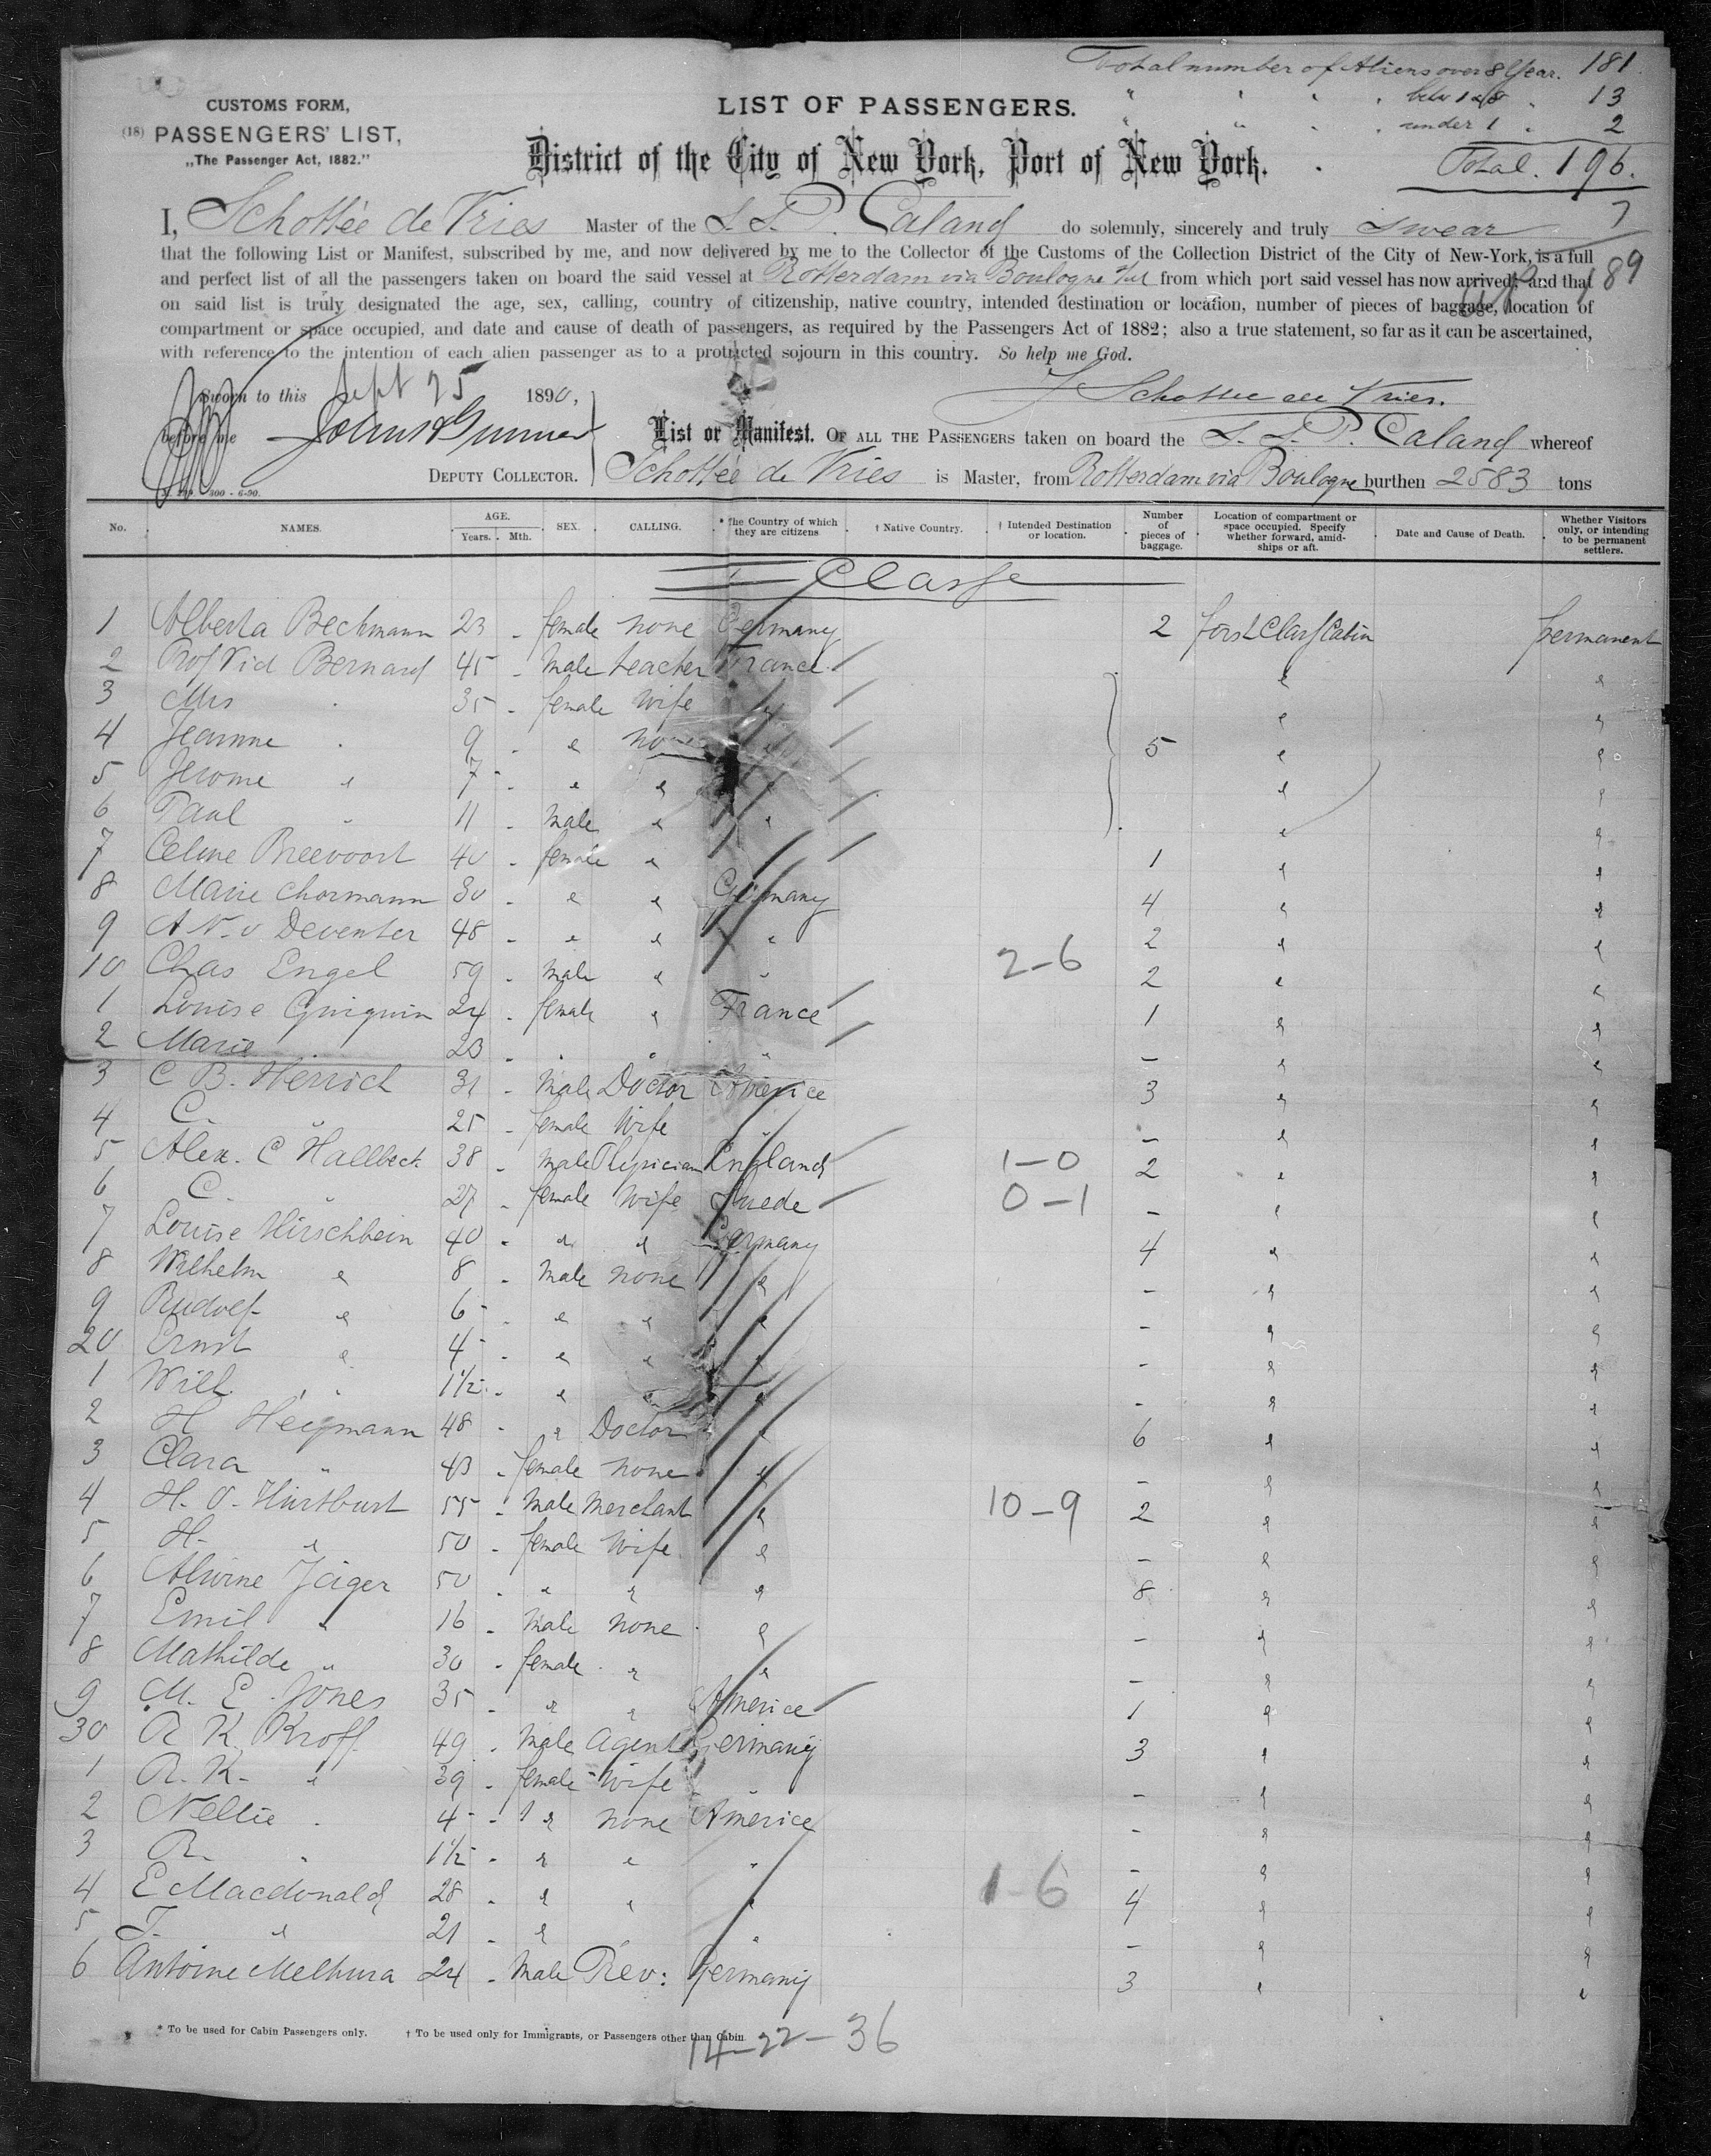 Total number of Aliens over 8 Year. 181.
" " " " betw 1 a 8 " 13
" " " " under 1 " 2
Total. 196.
7
189
CUSTOMS FORM,
(18) PASSENGERS' LIST,
„The Passenger Act, 1882."
LIST OF PASSENGERS.
District of the City of New York, Port of New York.
I, Schottée de Vries Master of the S.S. P. Caland do solemnly, sincerely and truly swear
that the following List or Manifest, subscribed by me, and now delivered by me to the Collector of the Customs of the Collection District of the City of New-York, is a full
and perfect list of all the passengers taken on board the said vessel at Rotterdam via Boulogne from which port said vessel has now arrived; and that
on said list is truly designated the age, sex, calling, country of citizenship, native country, intended destination or location, number of pieces of baggage, location of
compartment or space occupied, and date and cause of death of passengers, as required by the Passengers Act of 1882; also a true statement, so far as it can be ascertained,
with reference to the intention of each alien passenger as to a protracted sojourn in this country. So help me God.
Sworn to this Sept 25 1890,
J Schottee de Vries.
before me
DEPUTY COLLECTOR.
List or Manifest. OF ALL THE PASSENGERS taken on board the S.S. P. Caland whereof
Schottée de Vries is Master, from Rotterdam via Boulogne burthen 2583 tons
300 - 6-90.
No. NAMES. AGE. Years. Mth. SEX. CALLING. * The Country of which they are citizens † Native Country. † Intended Destination or location. Number of pieces of baggage. Location of compartment or space occupied. Specify whether forward, amidships or aft. Date and Cause of Death. Whether Visitors only, or intending to be permanent settlers.
I Classe
1 Alberta Bechmann 23 - female none Germany 2 first Class Cabin permanent
2 Prof Vid Bernard 45 - male teacher France " "
3 Mrs " 35 - female wife " " "
4 Jeanne " 9 - " none " 5 " "
5 Jerome " 7 - " " " " "
6 Paul " 11 - male " " " "
7 Celine Breevoort 40 - female " 1 " "
8 Marie Chormann 30 - " " Germany 4 " "
9 A N. v Deventer 48 - " " " 2 " "
10 Chas Engel 59 - male " " 2-6 2 " "
1 Louise Guignin 24 - female " France 1 " "
2 Marie " 23 - " " " - " "
3 C B. Herrich 31 - male Doctor Americe 3 " "
4 C. " 25 - female wife " - " "
5 Alex. C Hallbeck 38 - male Physician England 1-0 2 " "
6 C. " 27 - female wife Suede 0-1 - " "
7 Louise Hirschbein 40 - " " Germany 4 " "
8 Wilhelm " 8 - male none " - " "
9 Rudolf " 6 - " " " - " "
20 Ernst " 4 - " " " - " "
1 Will. " 1½ - " " " - " "
2 H Heymann 48 - " Doctor " 6 " "
3 Clara " 43 - female none " - " "
4 H. O. Hurtburt 55 - male merchant " 10-9 2 " "
5 H. " 50 - female wife " - " "
6 Alwine Jäger 50 - " " " 8 " "
7 Emil " 16 - male none " - " "
8 Mathilde " 30 - female " " - " "
9 M. E. Jones 35 - " " Americe 1 " "
30 A K. Kroff 49 - male agent Germany 3 " "
1 A. K. " 39 - female wife " - " "
2 Nellie " 4 - " none Americe - " "
3 R. " 1½ - " " " - " "
4 E Macdonald 28 - " " " 1-6 4 " "
5 T. " 21 - " " " - " "
6 Antoine Melhura 24 - male Rev: Germany 3 " "
* To be used for Cabin Passengers only. † To be used only for Immigrants, or Passengers other than Cabin
14-22-36